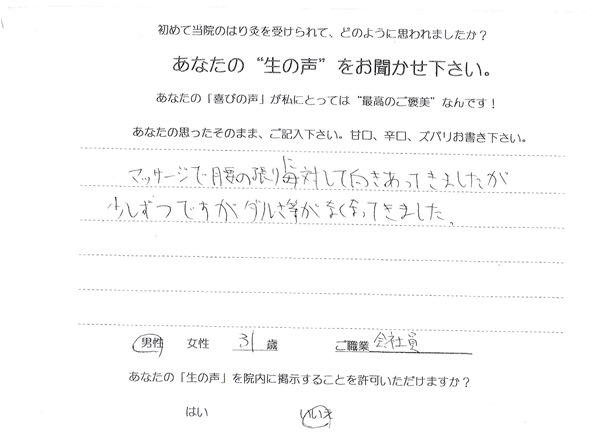 初めて当院のはり灸を受けられて、どのように思われましたか？
あなたの“生の声”をお聞かせ下さい。
あなたの「喜びの声」が私にとっては“最高のご褒美”なんです！
あなたの思ったそのまま、ご記入下さい。甘口、辛口、ズバリお書き下さい。
マッサージで腰の張り対して向きあってきましたが
少しずつですがダルさ等がなくなってきました。
男性 女性 31 歳 ご職業 会社員
あなたの「生の声」を院内に掲示することを許可いただけますか？
はい いいえ